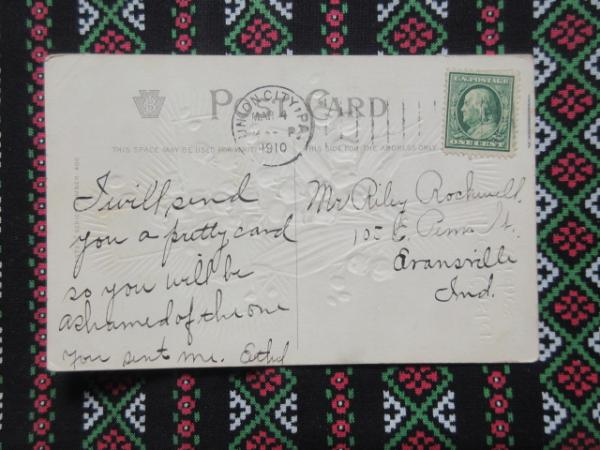 POST CARD
UNION CITY, PA.
MAR 4
P
1910
U.S. POSTAGE
ONE CENT
THIS SPACE MAY BE USED FOR
THIS SIDE FOR THE ADDRESS ONLY
I will send
you a pretty card
so you will be
ashamed of the one
You sent me. Ethel
Mr Riley Rockwell.
105 E. Penn St.
Evansville
Ind.